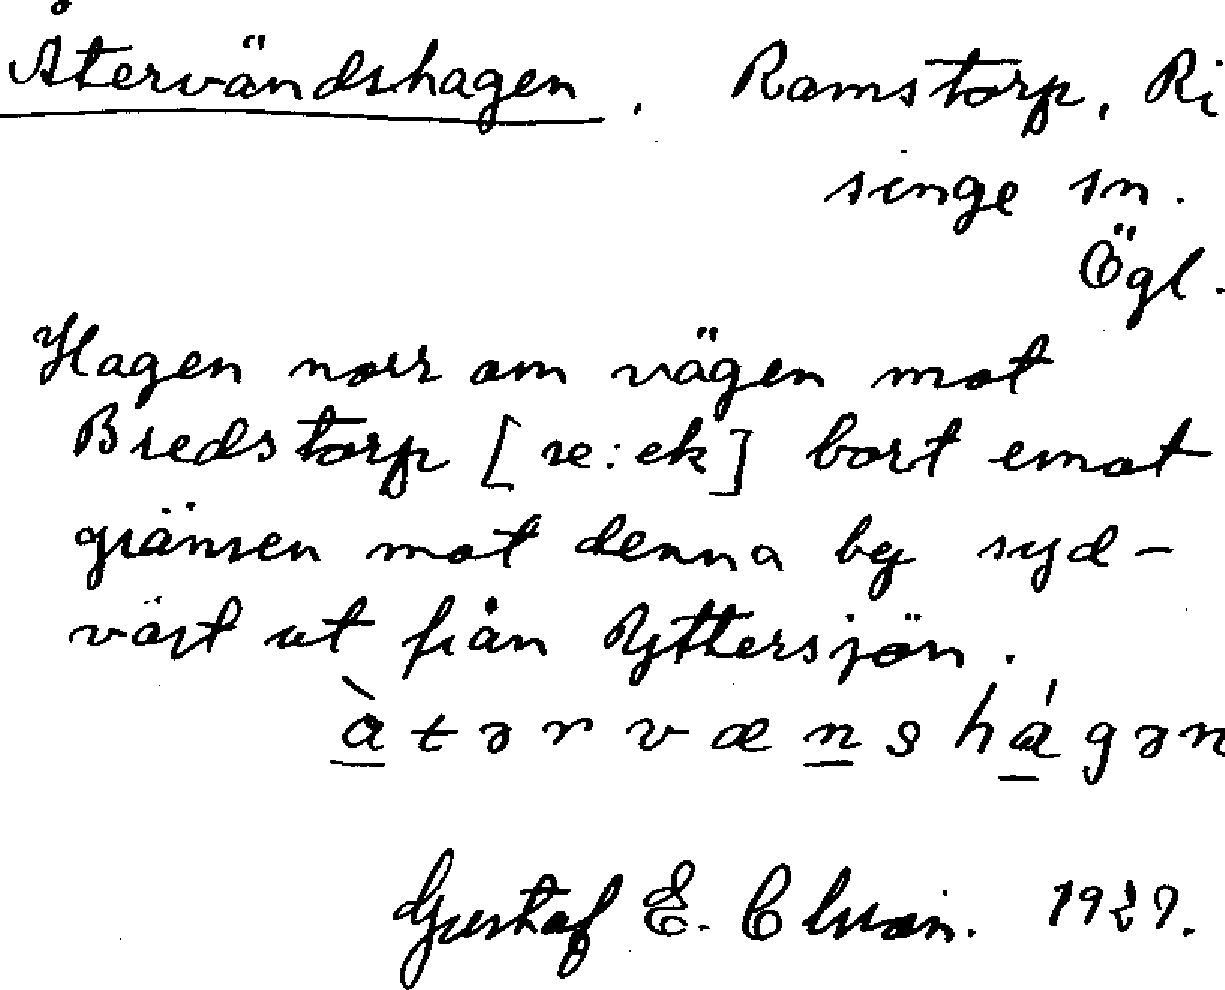 Återvändshagen. Ramstorp, Ri
singe sn.
Ögl.
Hagen norr om vägen mot
Bredstorp [re:ek] bort emot
gränsen mot denna by syd-
väst ut från Ryttersjön.
à t ə r v æ n s h á g ə n
Gustaf E. 1929.